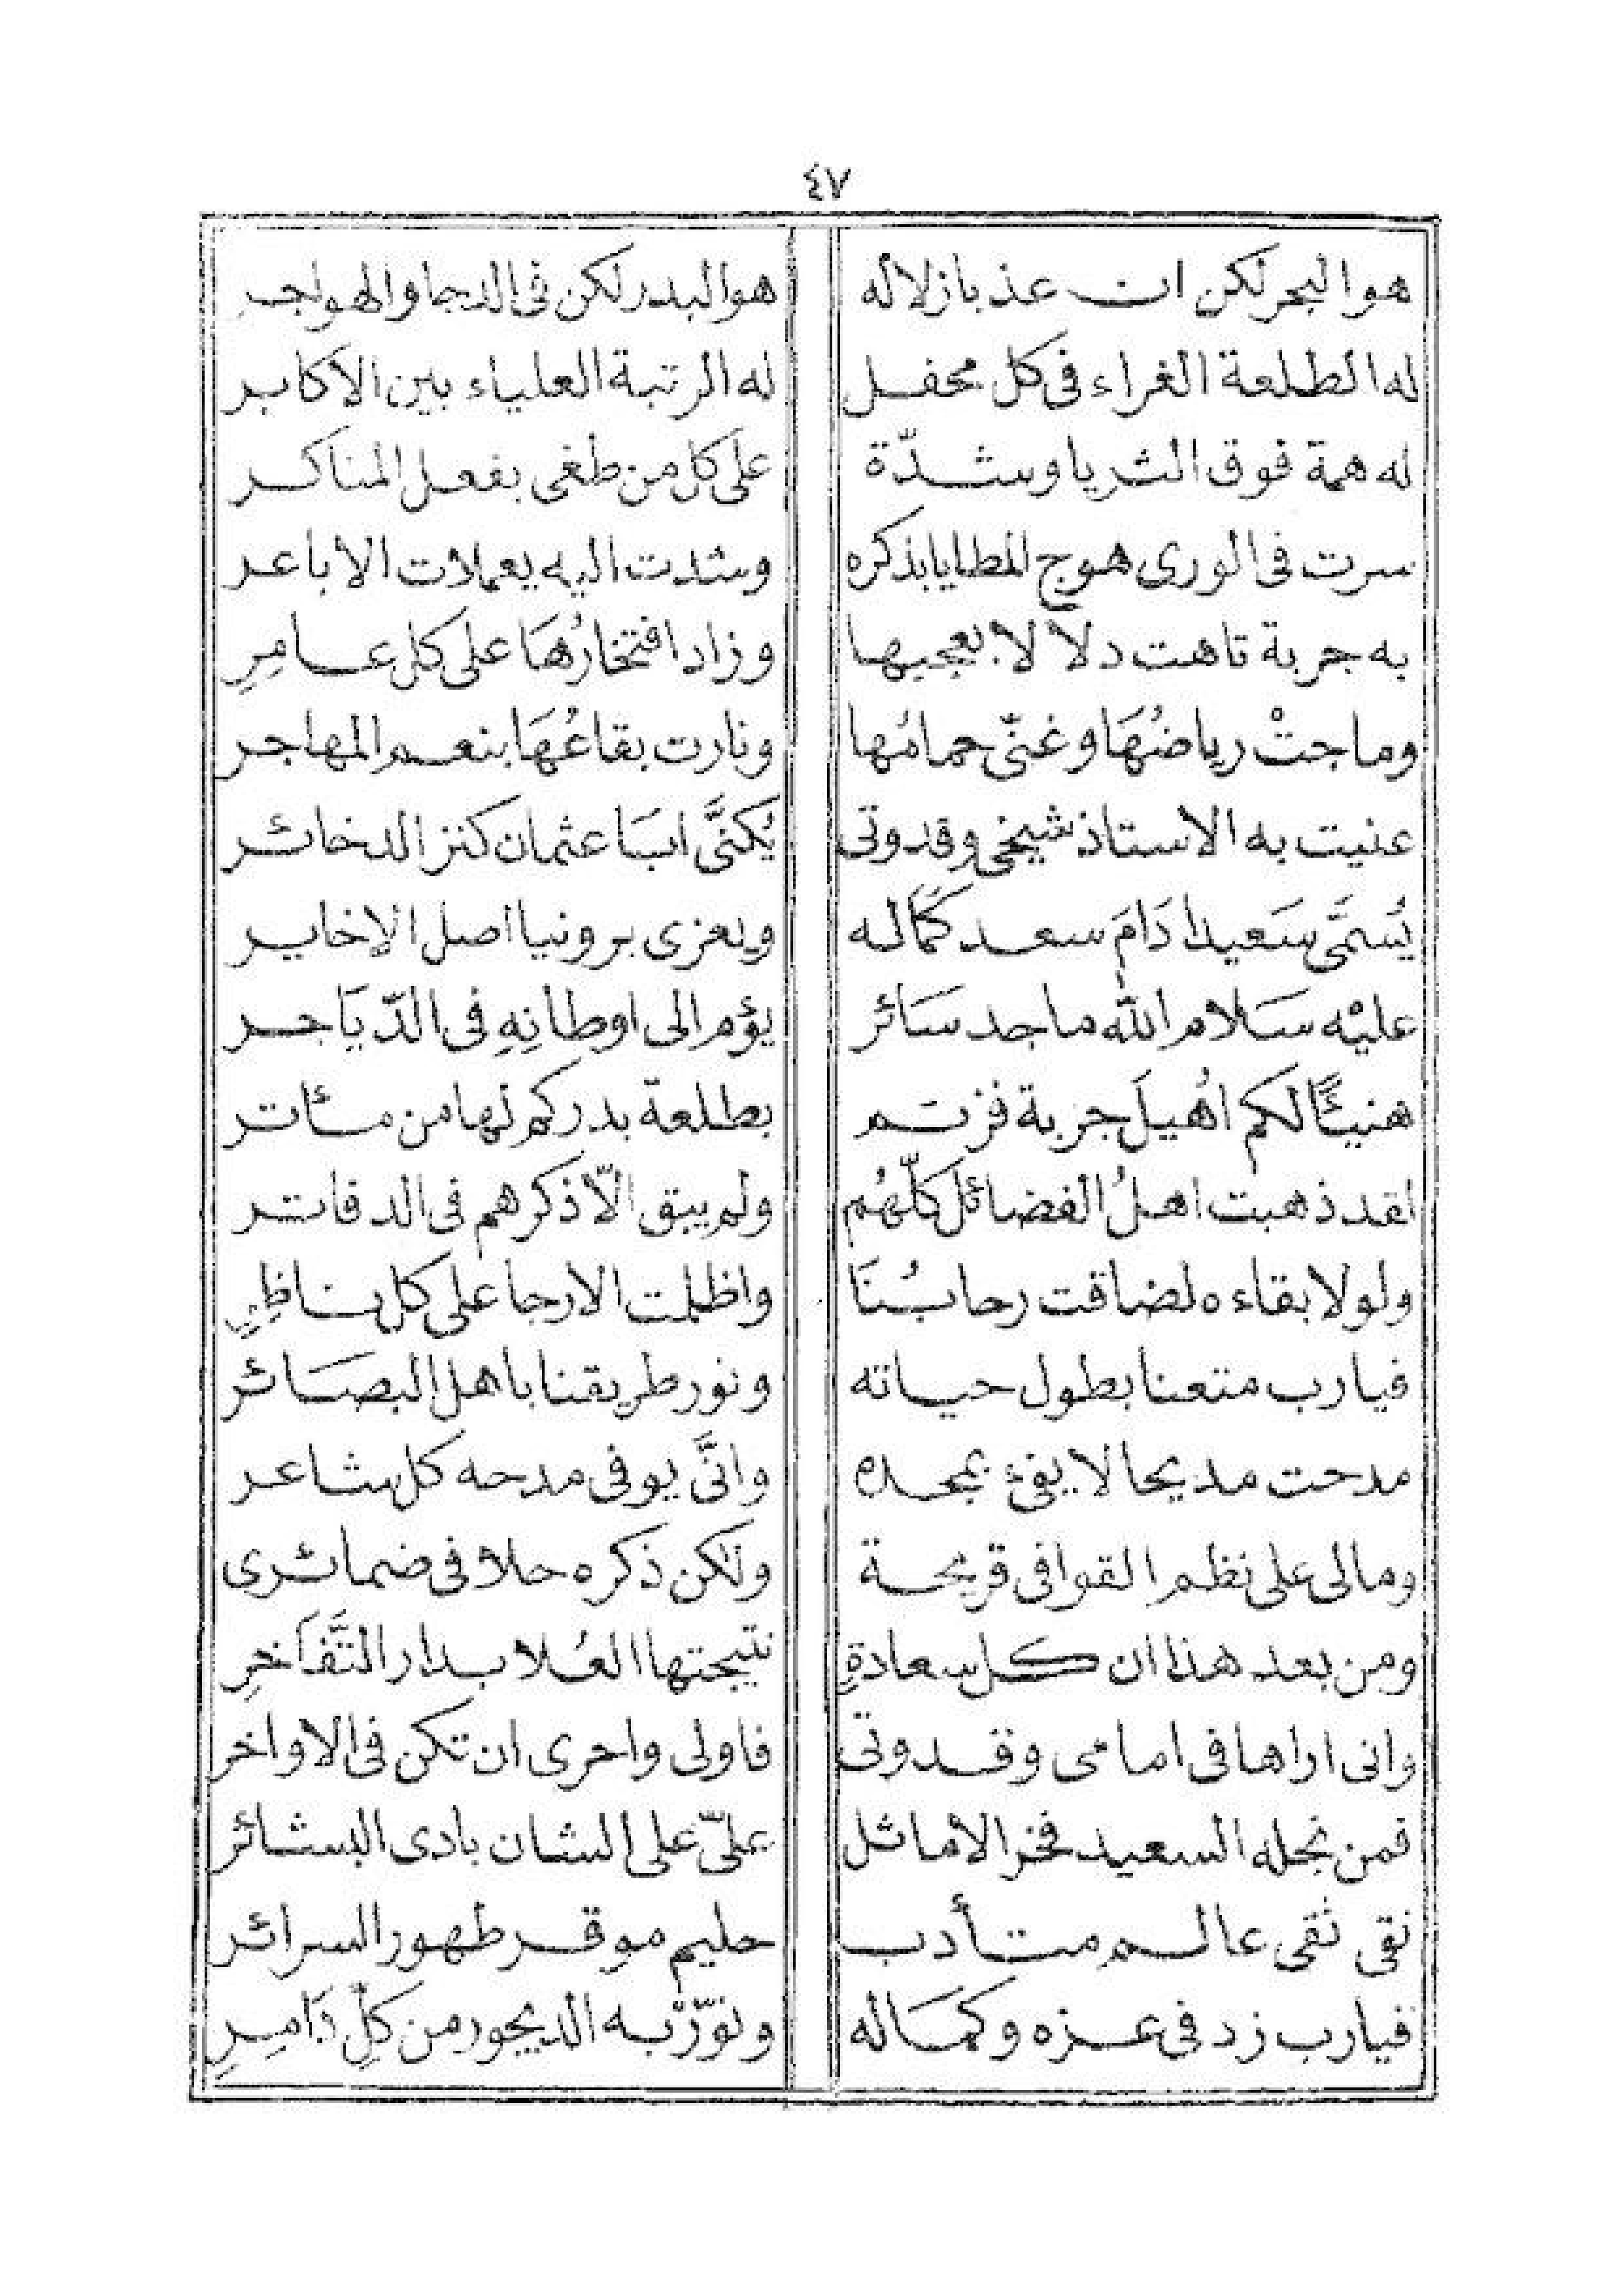 ٤٧
هو البحر لكن ان عذبا زلاله هو البدر لكن في الدجا والهواجر
له الطلعة الغراء في كل محفل له الرتبة العلياء بين الاكابر
له همة فوق الثريا وشدّة على كل من طغى بفعل المناكر
سرت في الورى هوج المطايا بذكره وشدت اليه يعملات الاباعر
به جربة تاهت دلالا بعجبها وزاد افتخارُهَا على كل عامِرِ
وماجتْ رياضُهَا وغنّى حمامُها ونارت بقاعُهَا بنعم المهاجر
عنيت به الاستاذ شيخي وقدوتي يُكنَّى ابَا عثمان كنز الدخائر
يُسَمَّى سَعيدا دَامَ سعد كَمَاله ويعزى برونيا اصل الاخاير
عليْه سَلام الله ماجد سَائر يؤم الى اوطانِهِ في الدّيَاجر
هنيئًا لكم اُهيلَ جربة فزتم بطلعة بدركم لها من مئاتر
لقد ذهبت اهلُ الفضائل كلّهُم ولم يبق الّا ذكرهم في الدفاتر
ولولا بقاءه لضاقت رحابُنَا واظلمت الارجا على كل ناظِرِ
فيارب متعنا بطول حياته ونور طريقنا باهل البصَائر
مدحت مديحا لا يفئ بمجده وانَّى يوفى مدحه كل شاعر
ومالى على نظم القوافى قريحة ولكن ذكره حلا في ضمائرى
ومن بعد هذا ان كل سعادةٍ نتيجتها العُلا بدار التَّفَاخرِ
وانى اراها في امامى وقدوتي فاولى واحرى ان تكن في الاواخر
فمن نجله السعيد فخر الاماثل علىّ على الشان بادى البشائر
نقى ثقى عالم متأدب حليم موقر طهور السرائر
فيارب زد في عزه وكمَاله ونوّرْ به الديجور من كلِّ دَامِرِ